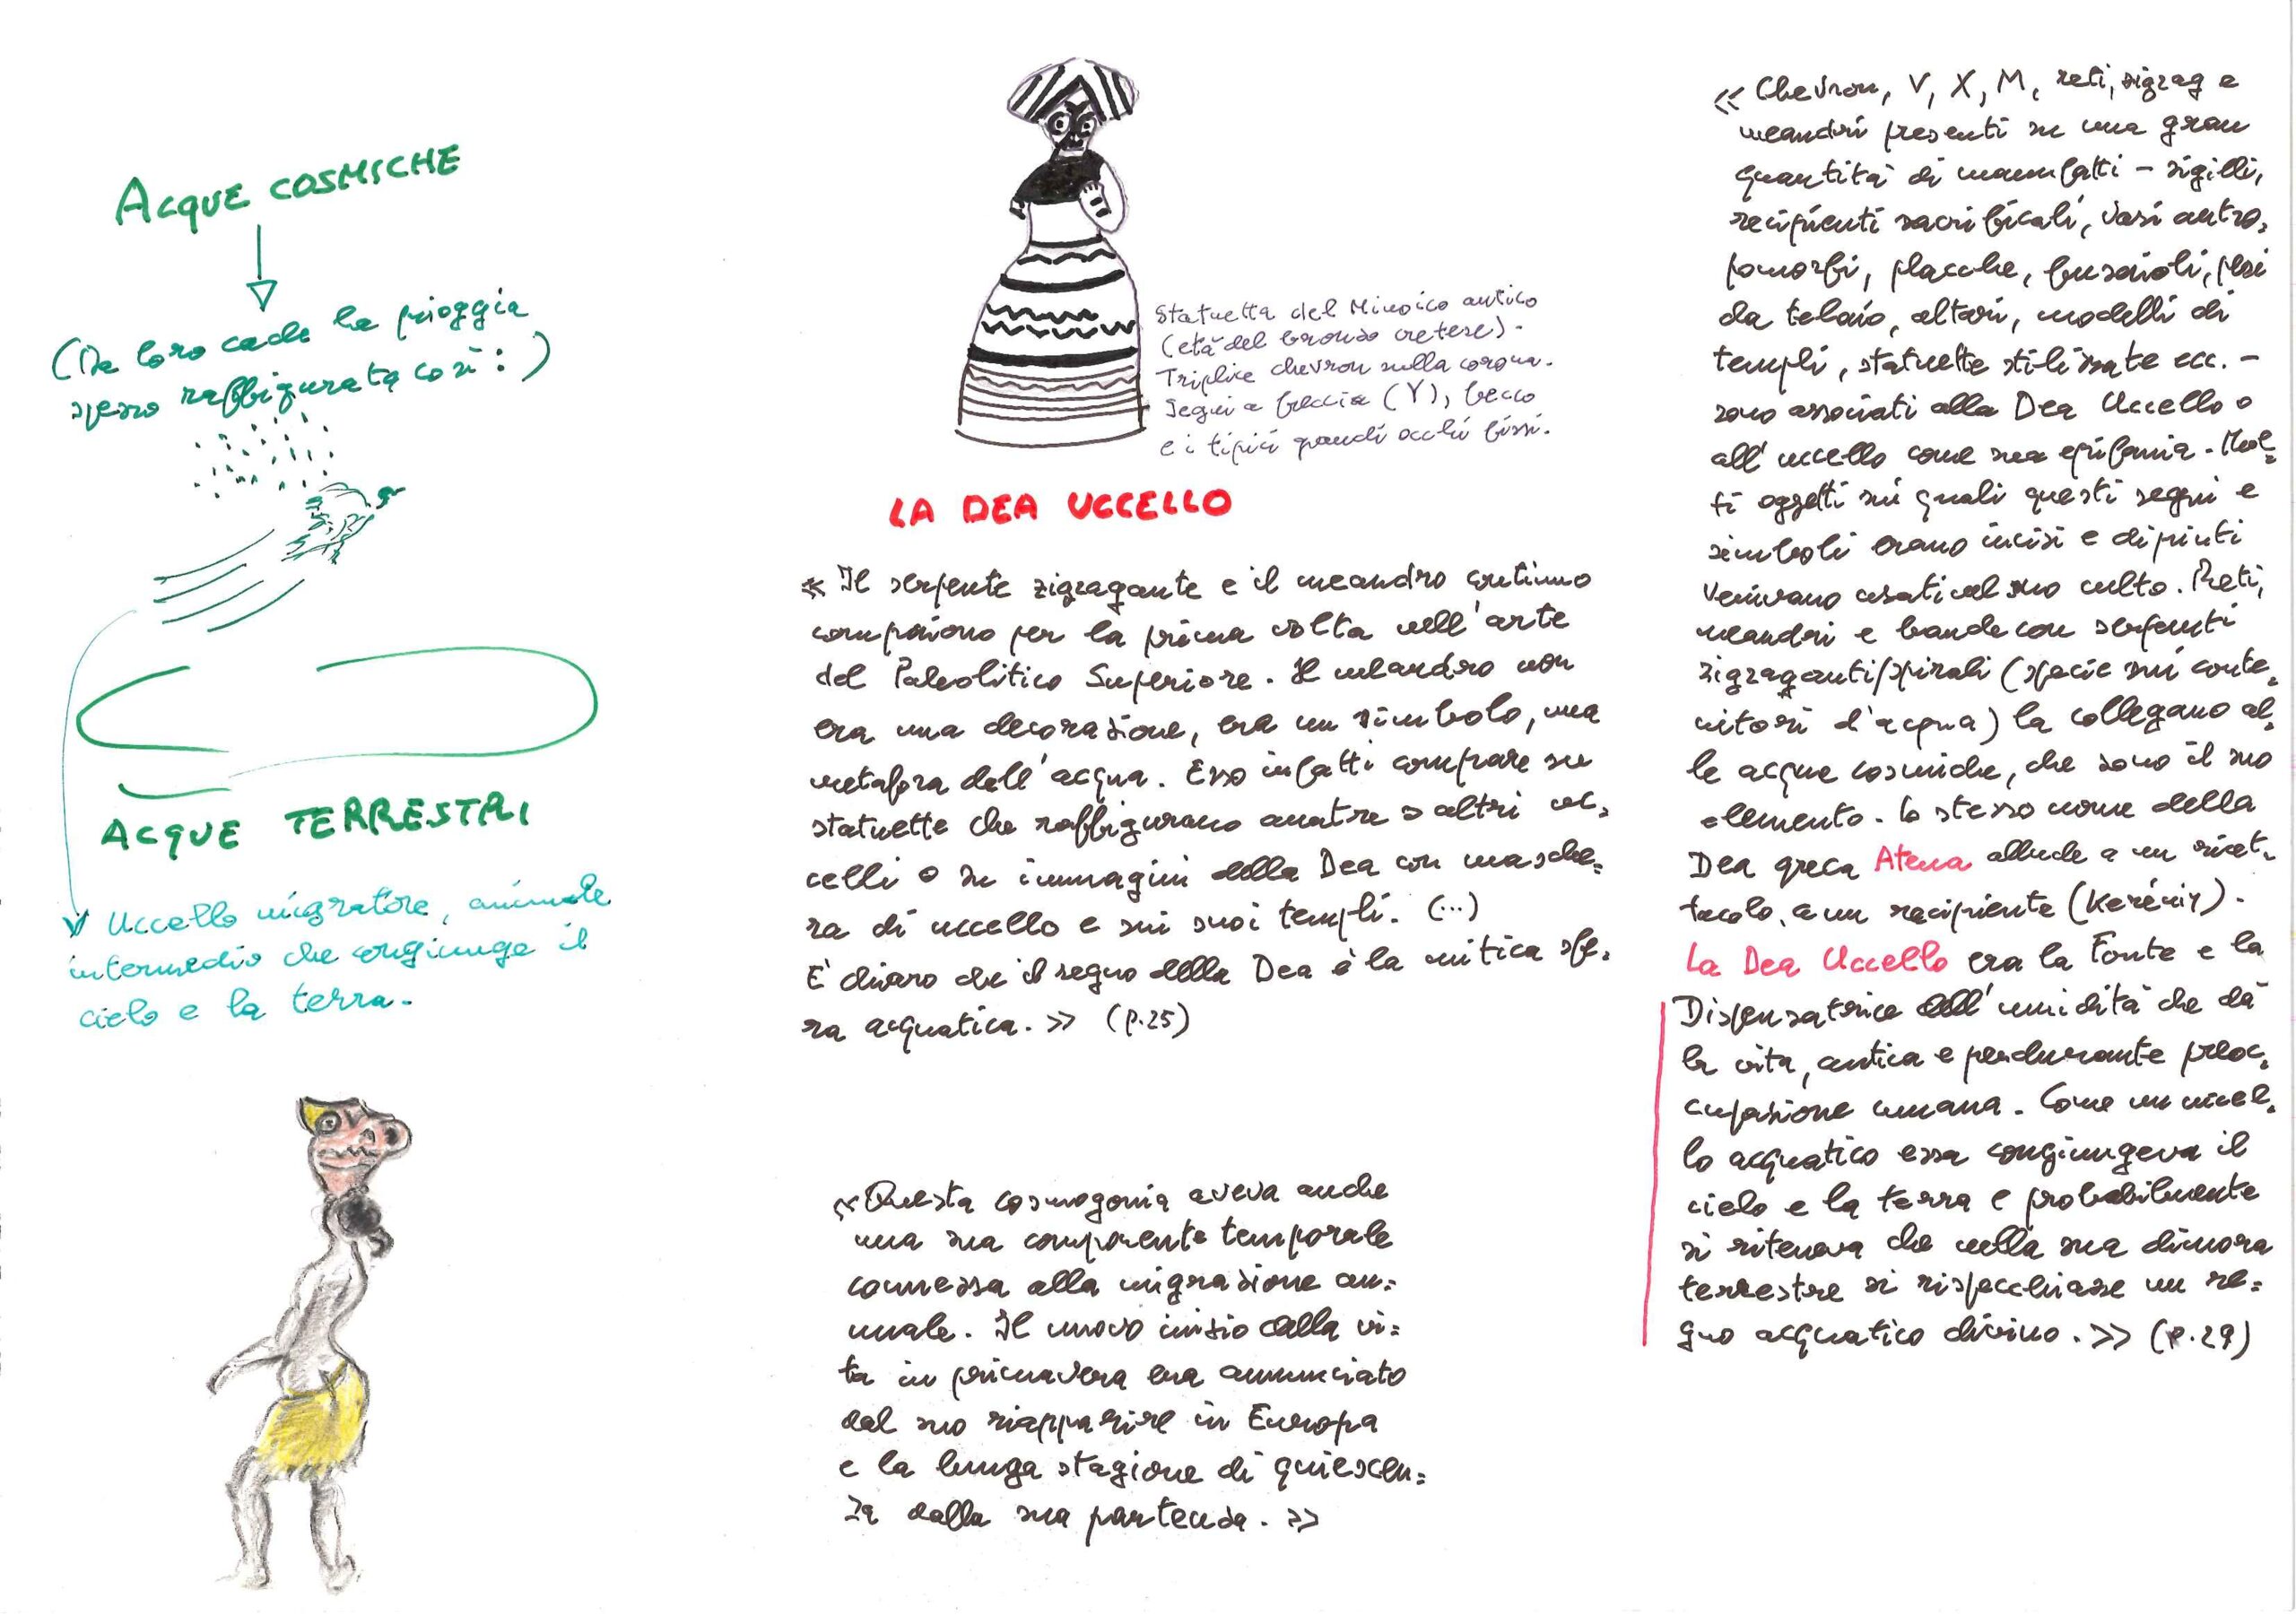 ACQUE COSMICHE
(Da loro cade la pioggia
spesso raffigurata così:)
ACQUE TERRESTRI
Uccello migratore, animale
intermedio che congiunge il
cielo e la terra.
Statuetta del Minoico antico
(età del bronzo cretese).
Triplice chevron sulla corona.
Segni a freccia (Y), becco
e i tipici grandi occhi fissi.
LA DEA UCCELLO
« Il serpente zigzagante e il meandro continuo
compaiono per la prima volta nell'arte
del Paleolitico Superiore. Il meandro non
era una decorazione, era un simbolo, una
metafora dell'acqua. Esso infatti compare su
statuette che raffigurano anatre o altri uc=
celli o su immagini della Dea con masche=
ra di uccello e sui suoi templi. (...)
E' chiaro che il segno della Dea è la mitica sfe=
ra acquatica. » (p.25)
« Questa cosmogonia aveva anche
una sua componente temporale
connessa alla migrazione an=
nuale. Il nuovo inizio della vi=
ta in primavera era annunciato
dal suo riapparire in Europa
e la lunga stagione di quiescen=
za dalla sua partenza. »
« Chevron, V, X, M, reti, zigzag e
meandri presenti su una gran
quantità di manufatti - sigilli,
recipienti sacrificali, vasi antro=
pomorfi, placche, fusaioli, pesi
da telaio, altari, modelli di
templi, statuette stilizzate ecc. -
sono associati alla Dea Uccello o
all'uccello come sua epifania. Mol=
ti oggetti sui quali questi segni e
simboli erano incisi e dipinti
venivano usati nel suo culto. Reti,
meandri e bande con serpenti
zigzaganti/spirali (specie sui conte=
nitori d'acqua) la collegano al=
le acque cosmiche, che sono il suo
elemento. Lo stesso nome della
Dea greca Atena allude a un ricet=
tacolo, a un recipiente (Kerényi).
La Dea Uccello era la Fonte e la
Dispensatrice dell'umidità che dà
la vita, antica e perdurante preoc=
cupazione umana. Come un uccel=
lo acquatico essa congiungeva il
cielo e la terra e probabilmente
si riteneva che nella sua dimora
terrestre si rispecchiasse un re=
gno acquatico divino. » (p.29)